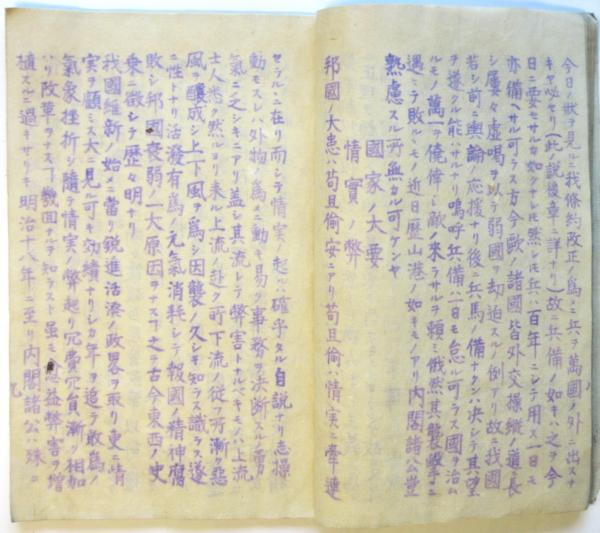 今日ノ狀ヲ見ルニ我條約改正ノ爲ニ兵ヲ萬國ノ外ニ出スナ
キヤ必セリ(此ノ說後章ニ詳ナリ)故ニ兵備ノ如キハ之ヲ今
日ニ要セサル如クナレ𪜈然レ𪜈兵ハ百年ニシテ用ヌ一日モ
亦備ヘサル可ラス方今歐ノ諸國皆外交操縱ノ道ニ長
シ屢々虛喝ヲ以テ弱國ヲ却迫スルノ例アリ故ニ我國
若シ前ニ輿論ノ應援ナリ後ニ兵馬ノ備ナクンハ決シテ其望
ヲ遂クル能ハサルナリ嗚呼兵備ハ一日モ怠ル可ラス國ヲ治ム
ルモノ萬一ヲ僥倖シ敵ノ來ラサルヲ頼ミ俄然其襲擊ニ
遇ヒテ敗ルヽモノ近日歷山港ノ如キモノアリ內閣諸公豈
熟慮スル所無カル可ケンヤ
國家ノ大要
情實ノ弊
邦國ノ大患ハ苟且偷安ニアリ苟且偷ハ情実ニ牽連
セラルヽニ在リ而シテ情実ノ起ル確乎タル自說ナリ志操
動モスレハ外物ノ爲メニ動キ易ク事務ヲ決斷スルノ勇
氣ニ乏シキニアリ蓋シ其流レテ弊害トナルベキモノハ上流
士人悉ク然ルヨリ來ル上流ノ赴ク所下流ノ從フ所漸ク惡
風ヲ釀成シ上下風ヲ爲シ因襲ノ久シキ知ラス識ラス遂
ニ性トナリ活潑有爲ノ元氣消耗シテ報國ノ精神腐
敗シ邦國衰弱ノ一大原因ヲナス之ヲ古今東西ノ史
乘ニ徵シテ歷々明ナリ
我國維新ノ始メニ當リ銳進活潑ノ政畧ヲ取リ更ニ情
実ヲ顧ミス大ニ見ル可キ効績ナリシカ年ヲ追テ敢爲ノ
氣象挫折シ隨テ情実ノ弊起リ冗費冗員漸ク相加
ハリ改革ヲナス丁數回ナルヲ知ラスト雖モ益弊害ヲ增
植スルニ過キサリキ明治十八年ニ至リ內閣諸公ハ殊ニ